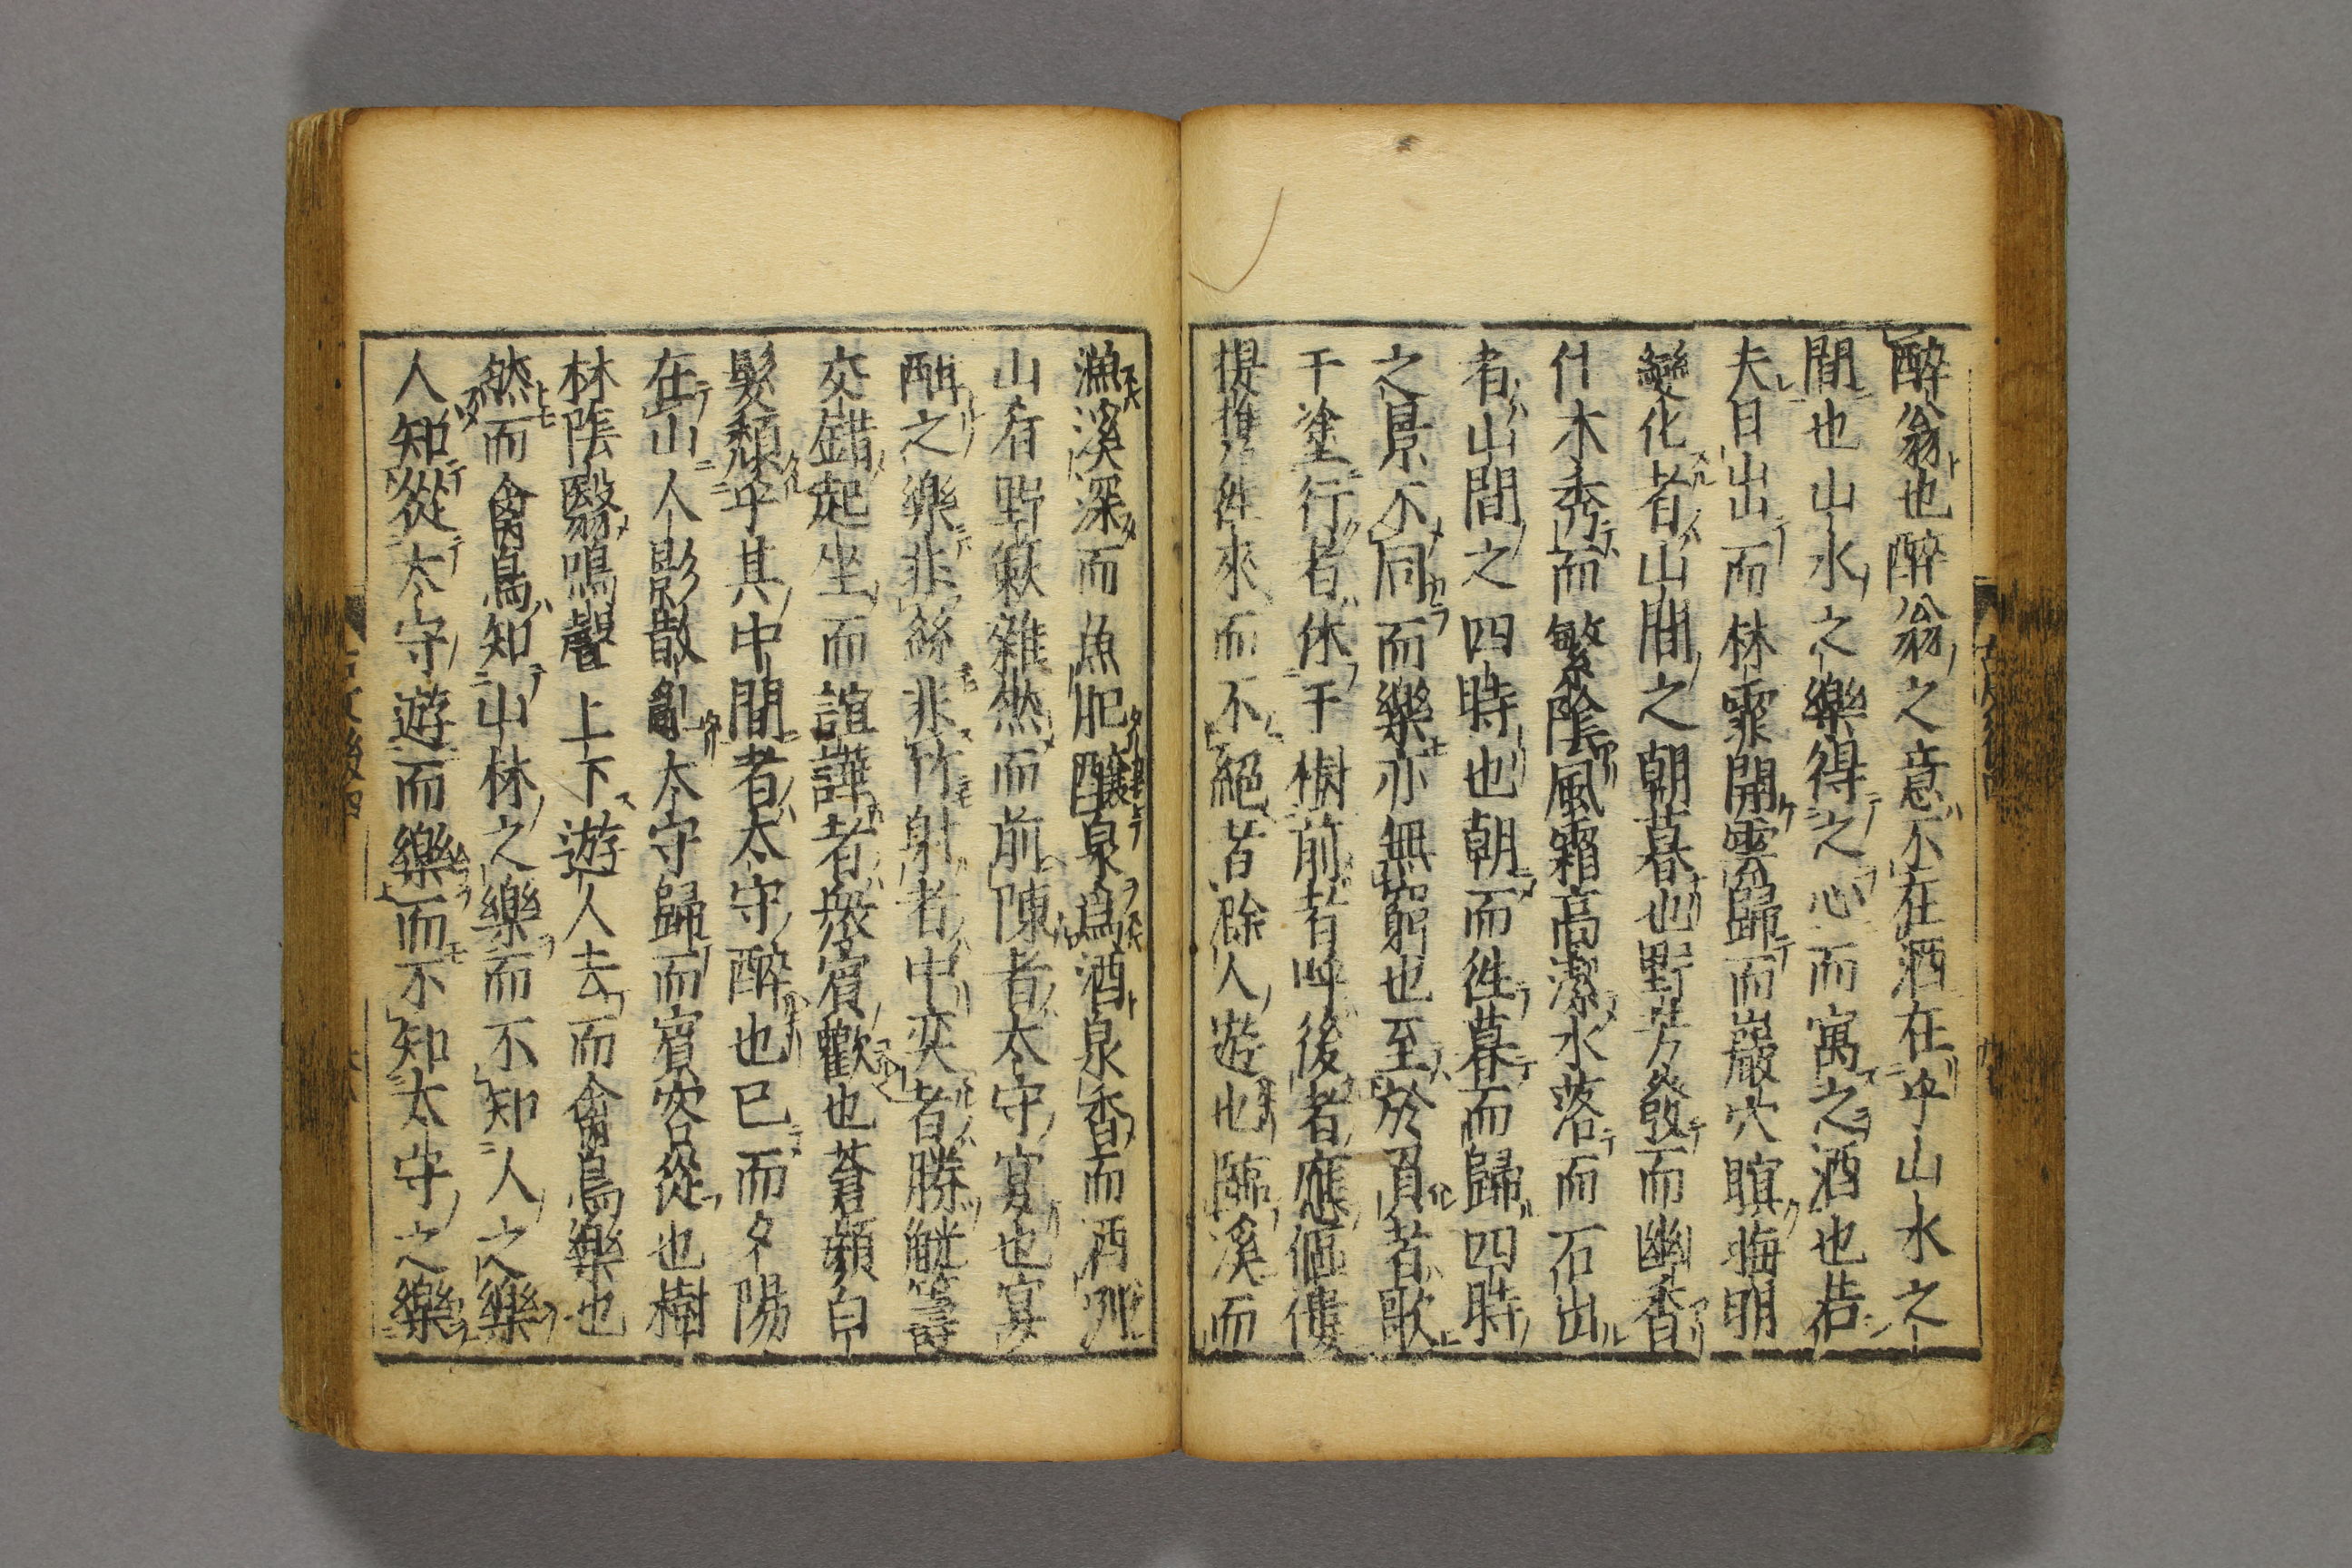 醉翁也醉翁之意不在酒在乎山水之
間也山水之樂得之心而寓之酒也若
夫日出而林霏開雲歸而巖穴暝晦明
變化者山間之朝暮也野芳發而幽香
什木秀而繁陰風霜高潔水落而石出
者山間之四時也朝而徃暮而歸四時
之景不同而樂亦無窮也至於負者歌
于塗行者休于樹前者呼後者應傴僂
提攜徃來而不絕者滁人遊也臨溪而
漁溪深而魚肥釀泉爲酒泉香而酒冽
山肴野蔌雜然而前陳者太守宴也宴
酣之樂非絲非竹射者中奕者勝觥籌
交錯起坐而諠譁者衆賓歡也蒼顏白
髮頹乎其中間者太守醉也已而夕陽
在山人影散亂太守歸而賓客從也樹
林陰翳鳴聲上下遊人去而禽鳥樂也
然而禽鳥知山林之樂而不知人之樂
人知從太守遊而樂而不知太守之樂